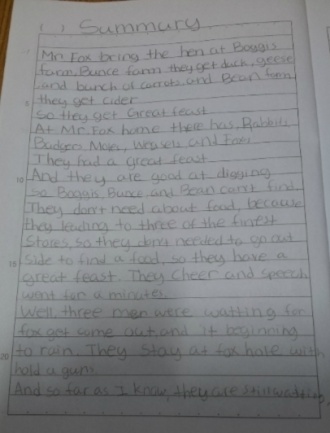 ( ) Summury
Mr. Fox bring the hen at Boggis
farm, Bunce farm they get duck, geese
and bunch of carrots and Bean farm
5 they get cider
So they get Great feast
At Mr. Fox home there has, Rabbits
Badgers, Moles, Weasels and foxes
They had a great feast
10 And they are good at digging
so Boggis, Bunce, and Bean can't find
They don't need about food, because
they leading to three of the finest
Stores, so they don't needed to go out
15 side to find a food, so they have a
great feast. They cheer and speech
went for a minutes
Well, three men were waitting for
fox get come out and it beginning
20 to rain. They stay at fox hole with
hold a gun.
And so far as I know, they are still waitting.